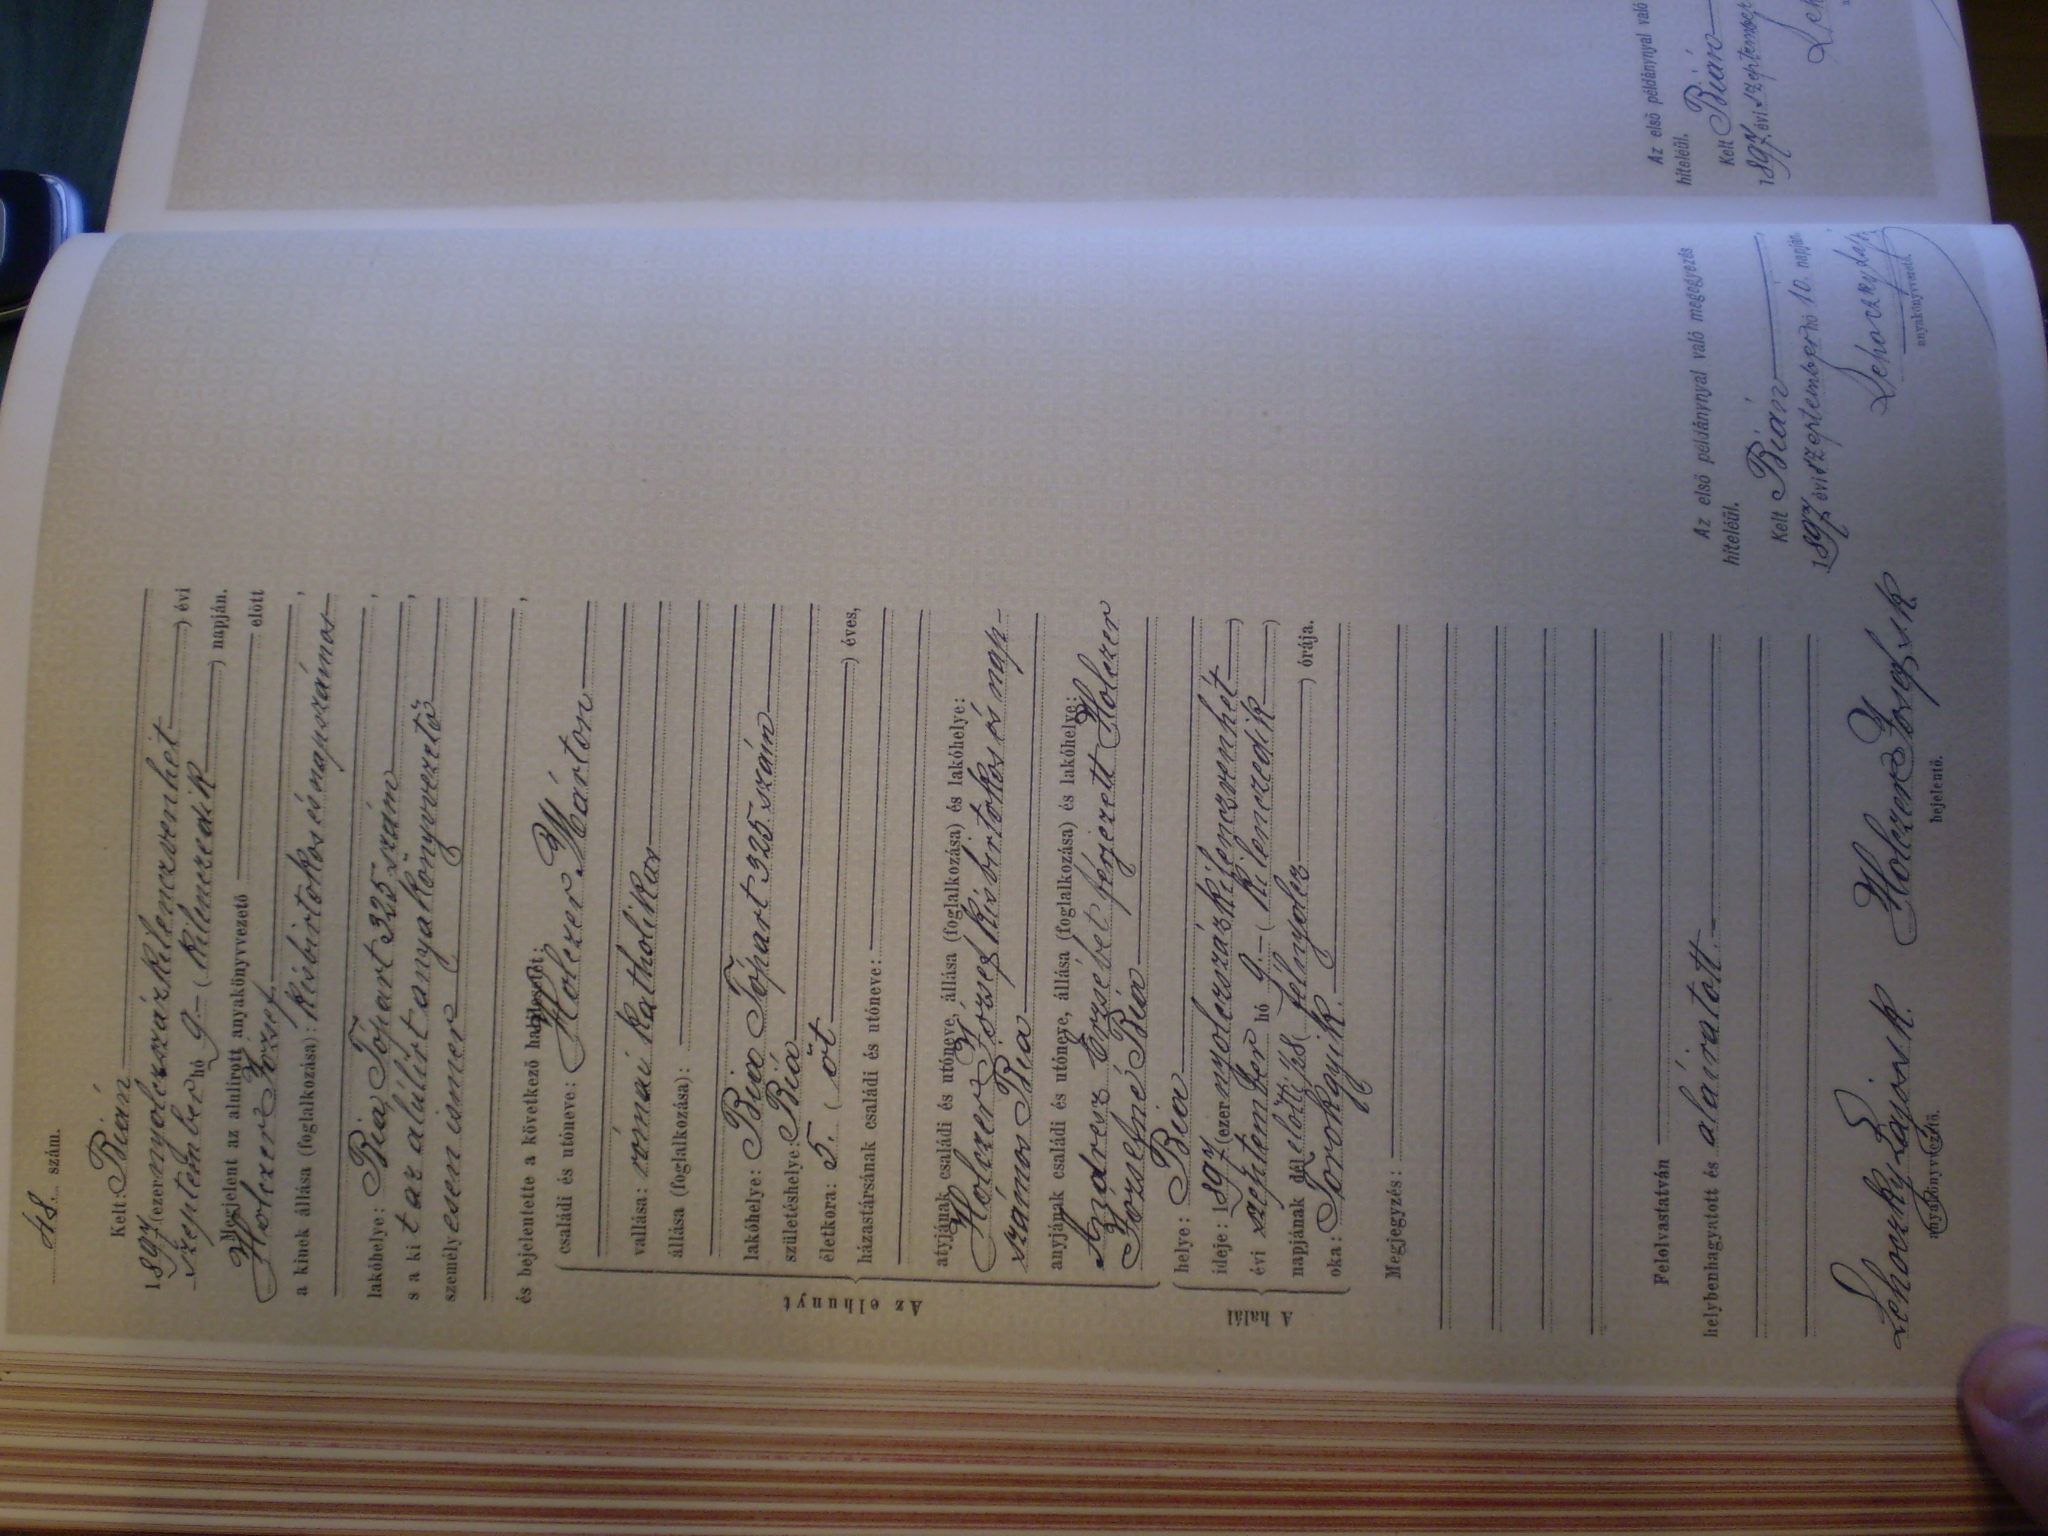 48. szám.
Kelt: Bián
1897 (ezernyolczszázkilenczvenhét) évi
szeptember hó 9- (kilenczedik) napján.
Megjelent az alulirott anyakönyvvezető előtt
Holczer József
a kinek állása (foglalkozása): kisbirtokos és napszámos,
lakóhelye: Bia Tópart 325 szám,
s a ki t az alúlírt anyakönyvvezető,
személyesen ismer
és bejelentette a következő halálesetet:
Az elhunyt
családi és utóneve: Holczer Márton
vallása: római katholikus
állása (foglalkozása):
lakóhelye: Bia Tópart 325 szám
születéshelye: Bia
életkora: 5. (öt) éves,
házastársának családi és utóneve:
atyjának családi és utóneve, állása (foglalkozása) és lakóhelye:
Holczer József kisbirtokos és nap-
számos Bia
anyjának családi és utóneve, állása (foglalkozása) és lakóhelye:
Andresz Erzsébet férjezett Holczer
Józsefné Bia
A halál
helye: Bia
ideje: 1897 (ezernyolczszázkilenczvenhét)
évi szeptember hó 9- (kilenczedik)
napjának dél előtti ½8 (félnyolcz) órája.
oka: Torokgyík.
Megjegyzés:
Felolvastatván
helybenhagyatott és aláiratott.
Lehoczky Lajos k.
anyakönyvvezető.
Holczer József sk
bejelentő.
Az első példánynyal való megegyezés
hiteléül.
Kelt Bián
1897 évi szeptember hó 10. napján
Lehoczky Lajos
anyakönyvvezető.
Az első példánynyal való
hiteléül.
Kelt Bián
1897. évi szeptember
Leh